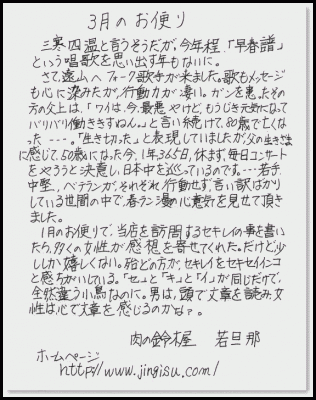 3月のお便り
三寒四温と言うそうだが、今年程、「早春譜」
という唱歌を思い出す年もないに。
さて、遠山へフォーク歌手が来ました。歌もメッセージ
も心に染みたが、行動力が凄い。ガンを患ったその
方の父上は、「ワイは、今、最悪やけど、もうじき元気になって
バリバリ働ききすねん。」と言い続けて、80歳で亡くな
った---。「生ききった」と表現していましたが、父の生きざま
に感じて、50歳になった今、1年365日、休まず、毎日コンサート
をやろうと決意し、日本中を巡っているのです。---若手、
中堅、ベテランが、それぞれ行動せず、言い訳ばかり
している世間の中で、春ラン漫の心意気を見せて頂き
ました。
1月のお便りで、当店を訪問するセキレイの事を書い
たら、多くの女性が感想を寄せてくれた。だけど少
ししか嬉しくない。殆どの方が、セキレイをセキセイインコ
と感ちがいしている。「セ」と「キ」と「イ」が同じだけで、
全然違う小鳥なのに。男は、頭で文章を読み、女
性は心で文章を感じるのかなァ。
肉の鈴木屋 若旦那
ホームページ
http://www.jingisu.com/